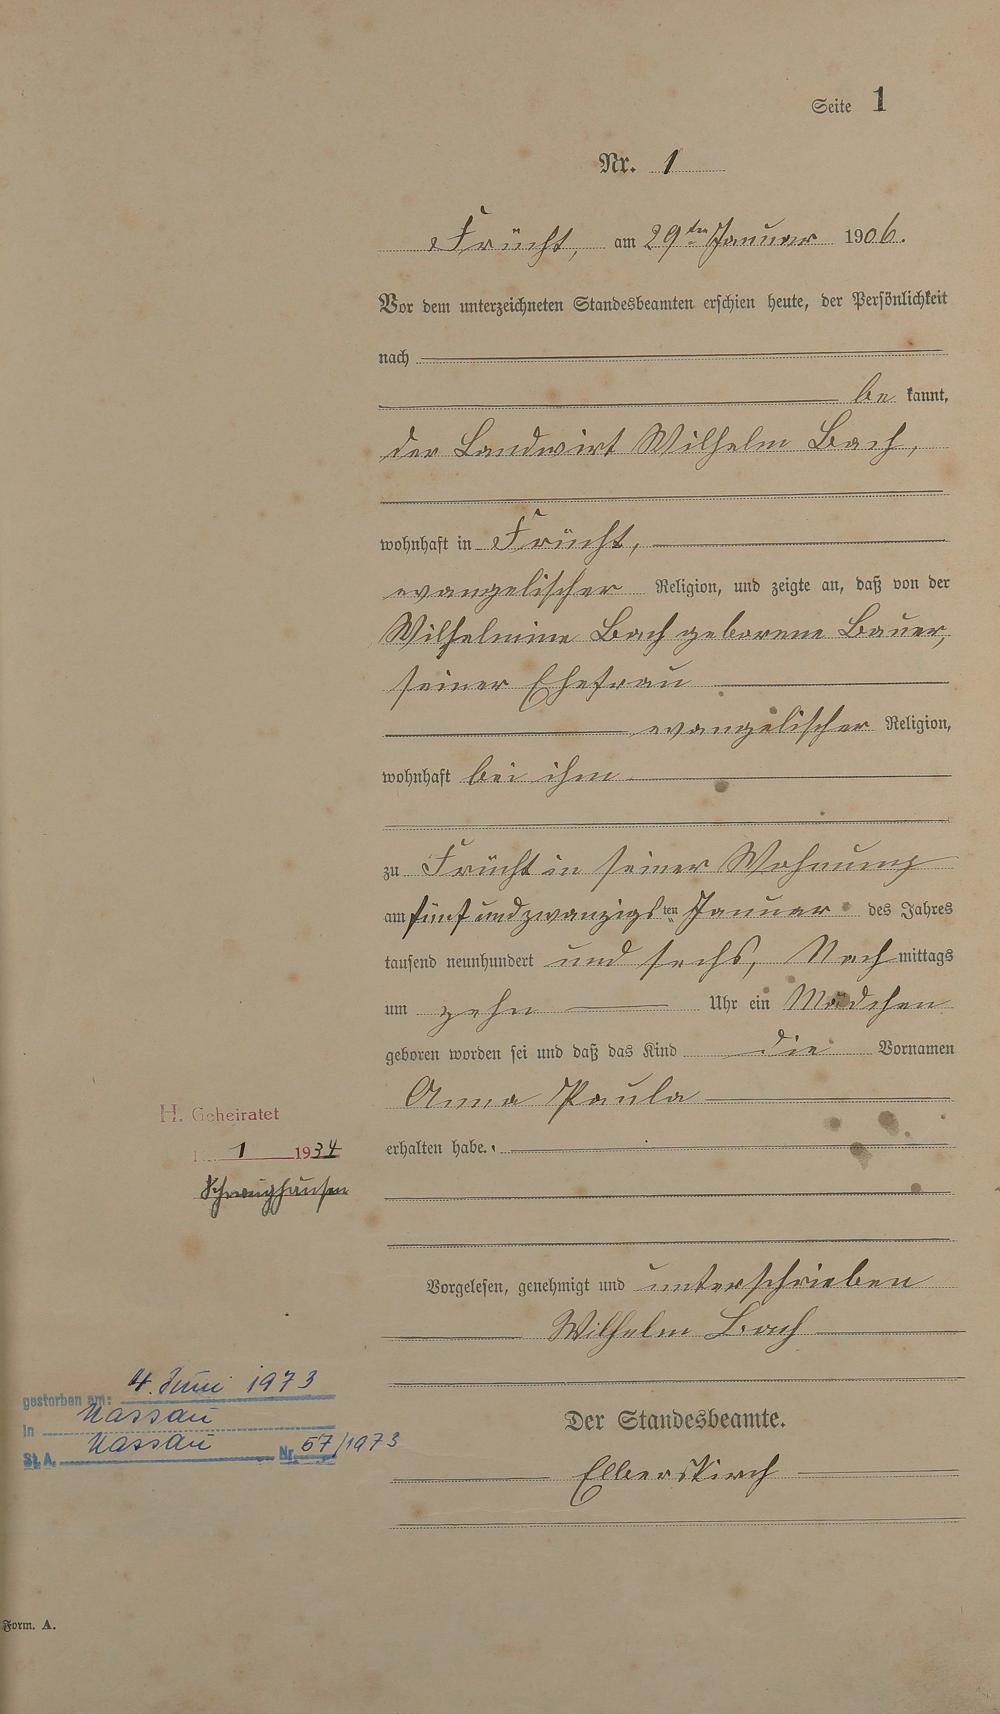 Seite 1
Nr. 1
Frücht, am 29ten Januar 1906.
Vor dem unterzeichneten Standesbeamten erschien heute, der Persönlichkeit
nach
be kannt,
der Landwirt Wilhelm Bach,
wohnhaft in Frücht,
evangelischer Religion, und zeigte an, daß von der
Wilhelmine Bach geborene Bauer,
seiner Ehefrau
evangelischer Religion,
wohnhaft bei ihm
zu Frücht in seiner Wohnung
am fünf und zwanzigsten Januar des Jahres
tausend neunhundert und sechs, Nachmittags
um zehn Uhr ein Mädchen
geboren worden sei und daß das Kind die Vornamen
Anna Paula
H. Geheiratet
1 1934
erhalten habe.
Schweighausen
Vorgelesen, genehmigt und unterschrieben
Wilhelm Bach
gestorben am: 4. Juni 1973
in Nassau
St. A. Nassau Nr. 57/1973
Der Standesbeamte.
Elberskirch
Form. A.